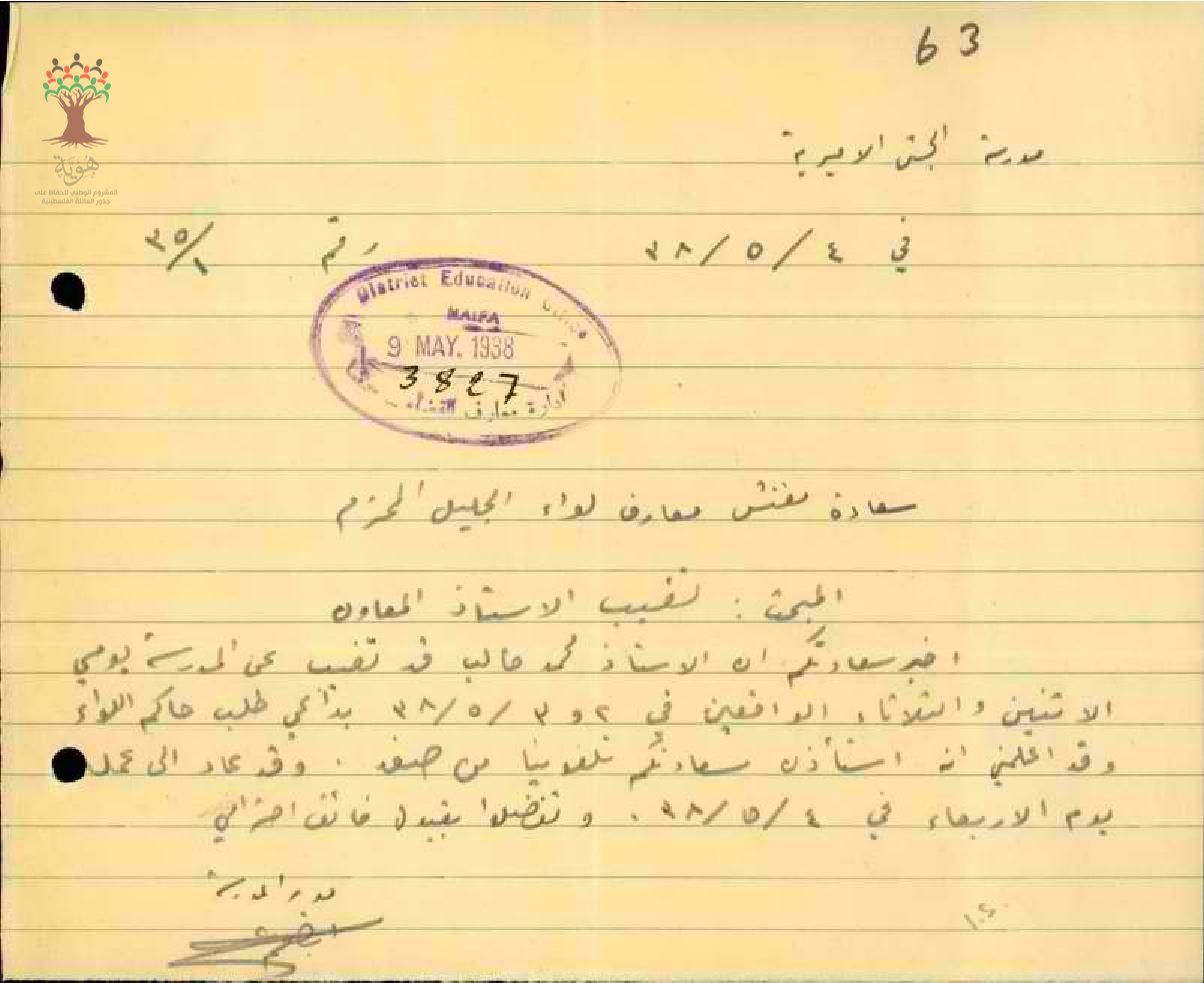 63
هوية
المشروع الوطني للحفاظ على
جذور العائلة الفلسطينية
مدرسة الجش الاميرية
في ٤ / ٥ / ٣٨ رقم ٣٥/١
District Education Office
HAIFA
9 MAY. 1938
3827
ادارة معارف
سعادة مفتش معارف لواء الجليل المحترم
المبحث : تغيب الاستاذ المعاون
اخبر سعادتكم ان الاستاذ محمد طالب قد تغيب عن المدرسة يومي
الاثنين والثلاثاء الواقعين في ٢ و ٣ / ٥ / ٣٨ بداعي طلب حاكم اللواء
وقد اعلمني انه استأذن سعادتكم تلفونيا من صفد . وقد عاد الى عمله
يوم الاربعاء في ٤ / ٥ / ٣٨ . وتفضلوا بقبول فائق احترامي
مدير المدرسة